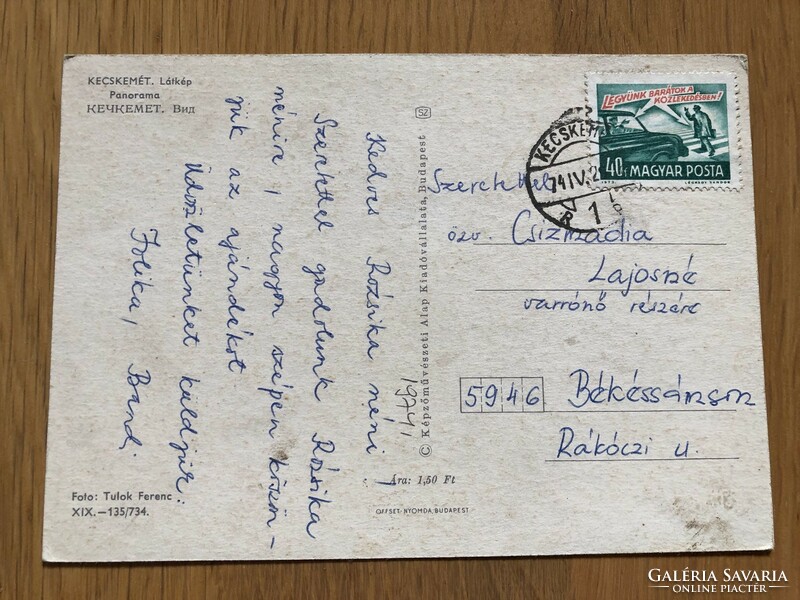 KECSKEMÉT. Látkép
Panorama
КЕЧКЕМЕТ. Вид
Kedves Rózsika néni!
Szeretettel gondolunk Rózsika
nénire, nagyon szépen köszön-
jük az ajándékot
Üdvözletünket küldjük:
Jolika, Bandi
1974
Foto: Tulok Ferenc
XIX.—135/734.
SZ
© Képzőművészeti Alap Kiadóvállalata, Budapest
Ára: 1,50 Ft
OFFSET-NYOMDA, BUDAPEST
LEGYÜNK BARÁTOK A
KÖZLEKEDÉSBEN!
40f MAGYAR POSTA
KECSKEMÉT
74 IV. 2
1
Szeretettel
özv. Csizmadia
Lajosné
varrónő részére
5946 Békéssámson
Rákóczi u.
GALÉRIA SAVARIA
ONLINE PIACTÉR